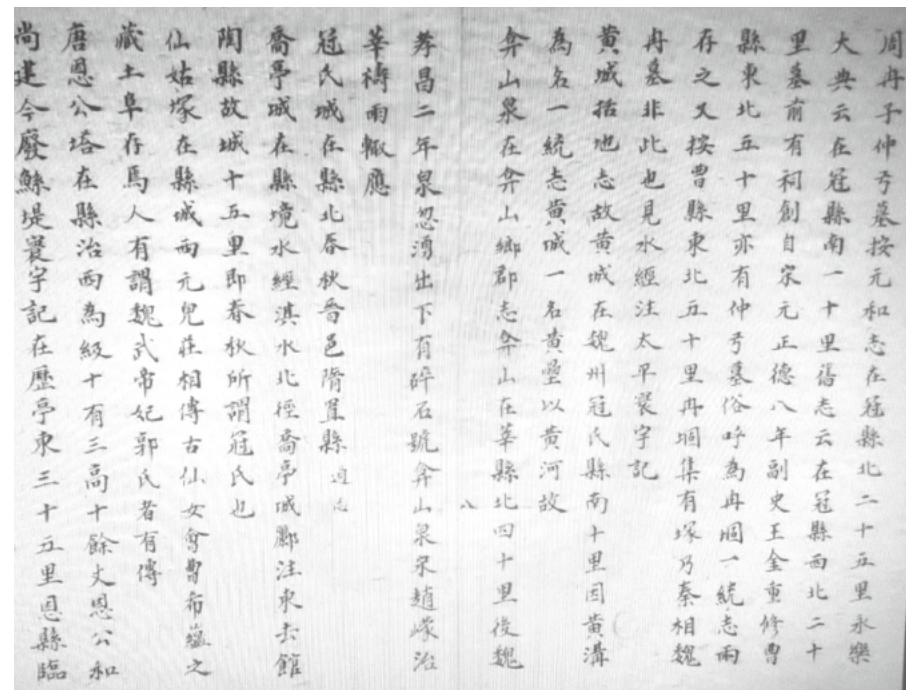 周冉子仲弓墓按元和志在冠縣北二十五里永樂
大典云在冠縣南一十里舊志云在冠縣西北二十
里墓前有祠創自宋元正德八年副史王金重修曹
縣東北五十里亦有仲弓墓俗呼為冉堌一統志兩
存之又按曹縣東北五十里冉堌集有塚乃秦相魏
冉墓非此也見水經注太平寰宇記
黃城括地志故黃城在魏州冠氏縣南十里因黃溝
為名一統志黃城一名黃壘以黃河故
弇山泉在弇山鄉郡志弇山在莘縣北四十里後魏
八
孝昌二年泉忽湧出下有碎石號弇山泉宋趙㠓治
莘禱雨輙應
冠氏城在縣北春秋晉邑隋置縣通志
喬亭城在縣境水經淇水北徑喬亭城酈注東去館
陶縣故城十五里即春秋所謂冠氏也
仙姑塚在縣城西元兒莊相傳古仙女會曹布蘊之
藏土阜存焉人有謂魏武帝妃郭氏者有傳
唐恩公塔在縣治西為級十有三高十餘丈恩公和
尚建今廢鯀堤寰宇記在歷亭東三十五里恩縣臨